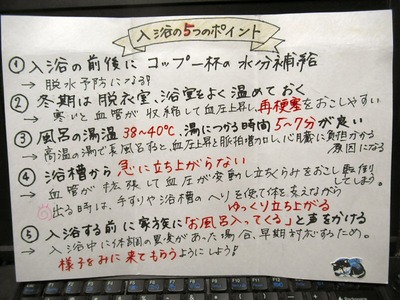 入浴の5つのポイント
① 入浴の前後に コップ一杯の 水分補給
→ 脱水予防になる!!
② 冬期は 脱衣室、浴室をよく温めておく
→ 寒いと血管が収縮して血圧上昇し、再梗塞をおこしやすい
③ 風呂の湯温 38~40℃、湯につかる時間 5~7分が良い
→ 高温の湯で長風呂すると、血圧上昇と脈拍増加し、心臓に負担かかる
原因になる
④ 浴槽から 急に立ち上がらない
→ 血管が拡張して血圧が変動し立ちくらみをおこし転倒
してしまう。
出る時は、手すりや浴槽のへりを使て体を支えながら
ゆっくり立ち上がる
⑤ 入浴する前に家族に「お風呂入ってくる」と声をかける
→ 入浴中に体調の異変があった場合、早期対応するため。
様子をみに来てもらうようにしよう!